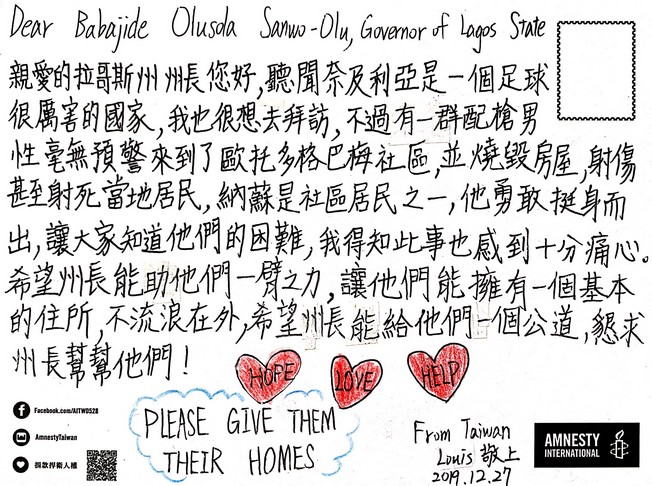 Dear Babajide Olusola Sanwo-Olu, Governor of Lagos State
親愛的拉哥斯州 州長您好,聽聞奈及利亞是一個足球
很厲害的國家,我也很想去拜訪,不過有一群配槍男
性毫無預警來到了歐托多格巴梅社區,並燒毀房屋,射傷
甚至射死當地居民,納蘇是社區居民之一,他勇敢挺身而
出,讓大家知道他們的困難,我得知此事也感到十分痛心。
希望州長能助他們一臂之力,讓他們能擁有一個基本
的住所,不流浪在外,希望州長能給他們一個公道,懇求
州長幫幫他們!
HOPE
LOVE
HELP
PLEASE GIVE THEM
THEIR HOMES
Facebook.com/AITWD528
AmnestyTaiwan
捐款捍衛人權
From Taiwan
Louis 敬上
2019.12.27
AMNESTY
INTERNATIONAL